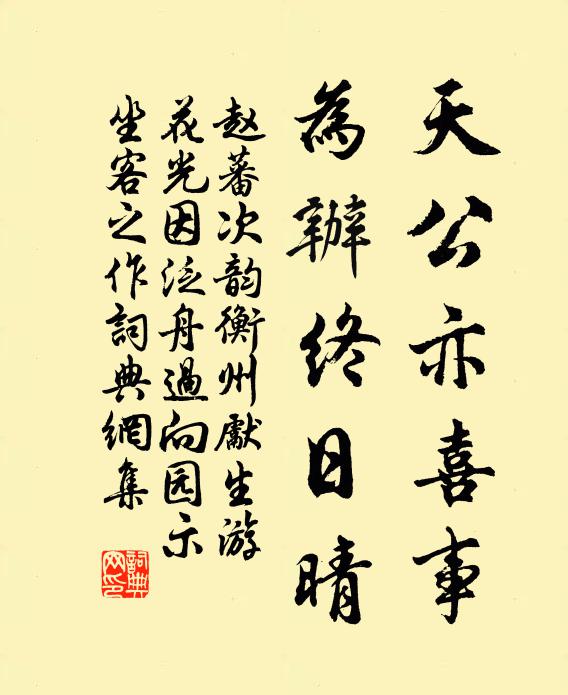 天公亦喜事
為辦終日晴
赵蕃次韵衡州獻生游
花光因泛舟過向园示
坐客之作詞典網集
詞典網印